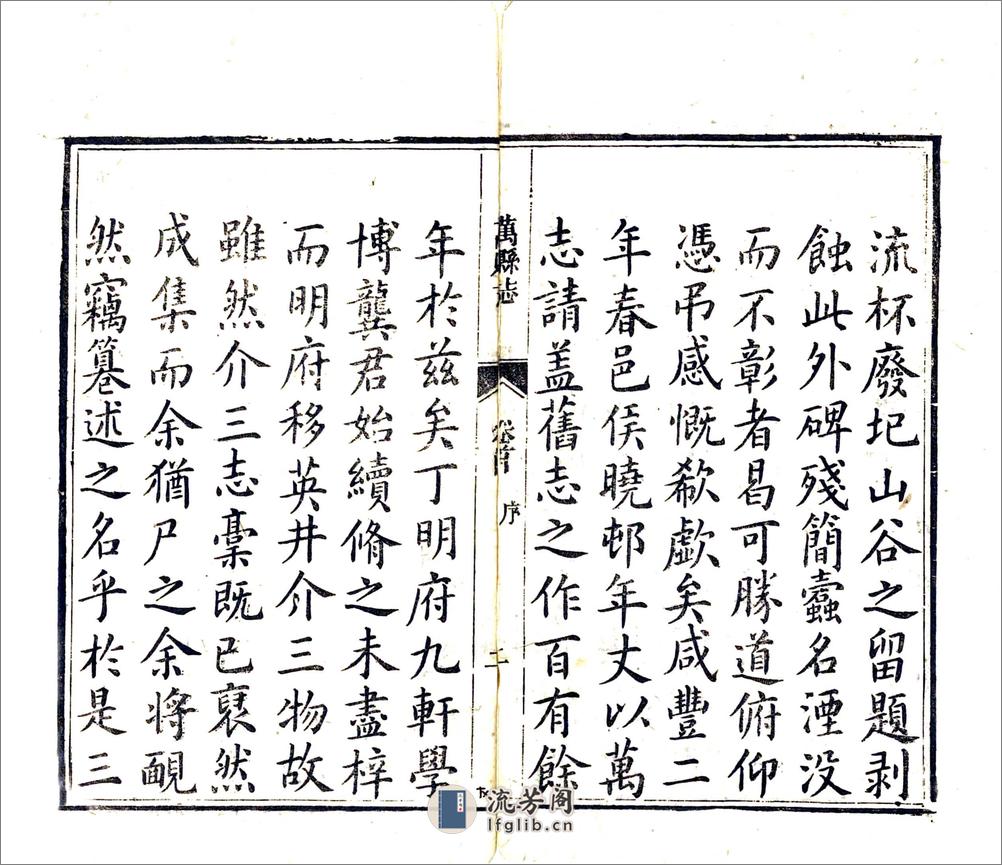 流杯廢圮山谷之留題剥
蝕此外碑殘簡蠹名湮没
而不彰者曷可勝道俯仰
憑弔感慨欷歔矣咸豐二
年春邑侯曉邨年丈以萬
志請盖舊志之作百有餘
萬縣志
卷首
序
二
年於兹矣丁明府九軒學
博龔君始續脩之未盡梓
而明府移英井介三物故
雖然介三志稾既已裒然
成集而余猶尸之余將靦
然竊簒述之名乎於是三
流芳阁
lfglib.cn